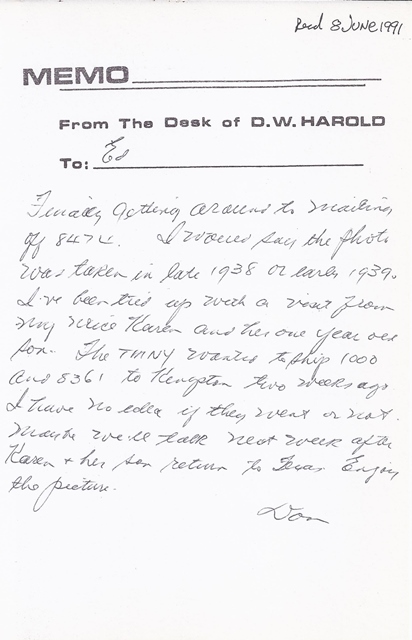 Recd 8 JUNE 1991
MEMO
From The Desk of D.W. HAROLD
To: Ed
Finally getting around to mailing
off 8474. I would say the photo
was taken in late 1938 or early 1939.
I've been tied up with a visit from
my niece Karen and her one year old
son. The TMNY wanted to ship 1000
and 5361 to Kingston two weeks ago.
I have no idea if they went or not.
Maybe we'll talk next week after
Karen + her son return to Texas. Enjoy
the picture.
Don